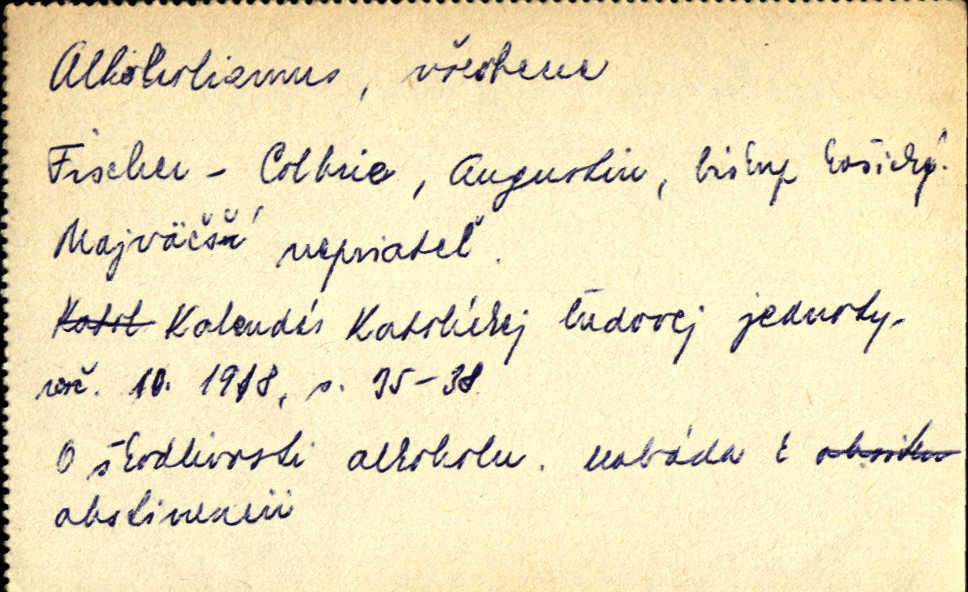 Alkoholizmus, všeobecne
Fischer - Colbrie, Augustin, biskup košický.
Najväčší nepriateľ.
Katol Kalendár Katolíckej ľudovej jednoty.
roč. 10. 1918, s. 35-38.
O škodlivosti alkoholu. Nabáda k
abstinencii